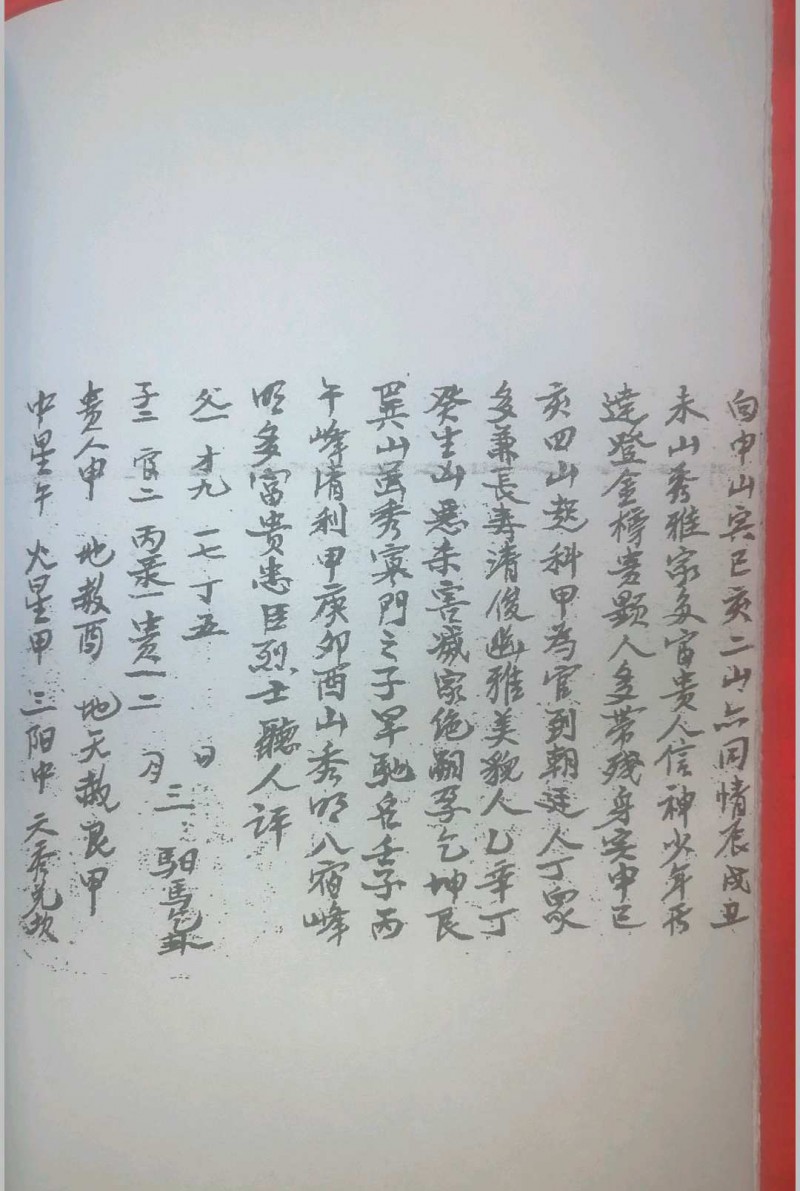 向申山寅巳亥二山亦同情辰戌丑
未山秀雅家多富貴人信神少年
達登金榜贵顕人多帯残身寅申巳
亥四山起科甲為官到朝廷人丁眾
多兼長寿清俊幽雅美貌人乙辛丁
癸生山悪杀害滅家绝嗣孕乞坤艮
巽山畄秀寡門之子早馳名壬子丙
午峰清利甲庚夘酉山秀明八宿峰
明多富贵忠臣烈士聽人評
父一才九 一七丁五 日
子二 官二 丙录一 贵一二 月
三 馹馬
贵人甲 地教酉 地天教艮甲
中星午 火星甲 三阳中 天秀兑坎